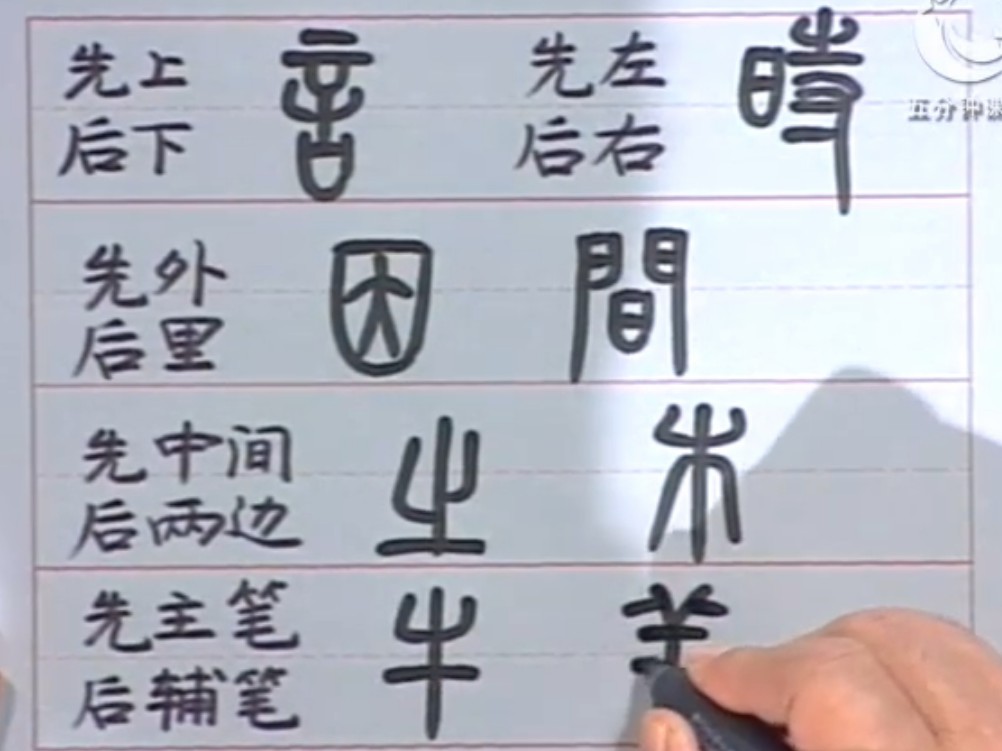 先上
后下
言
先左
后右
時
五分钟
先外
后里
因
間
先中间
后两边
之
木
先主笔
后辅笔
牛